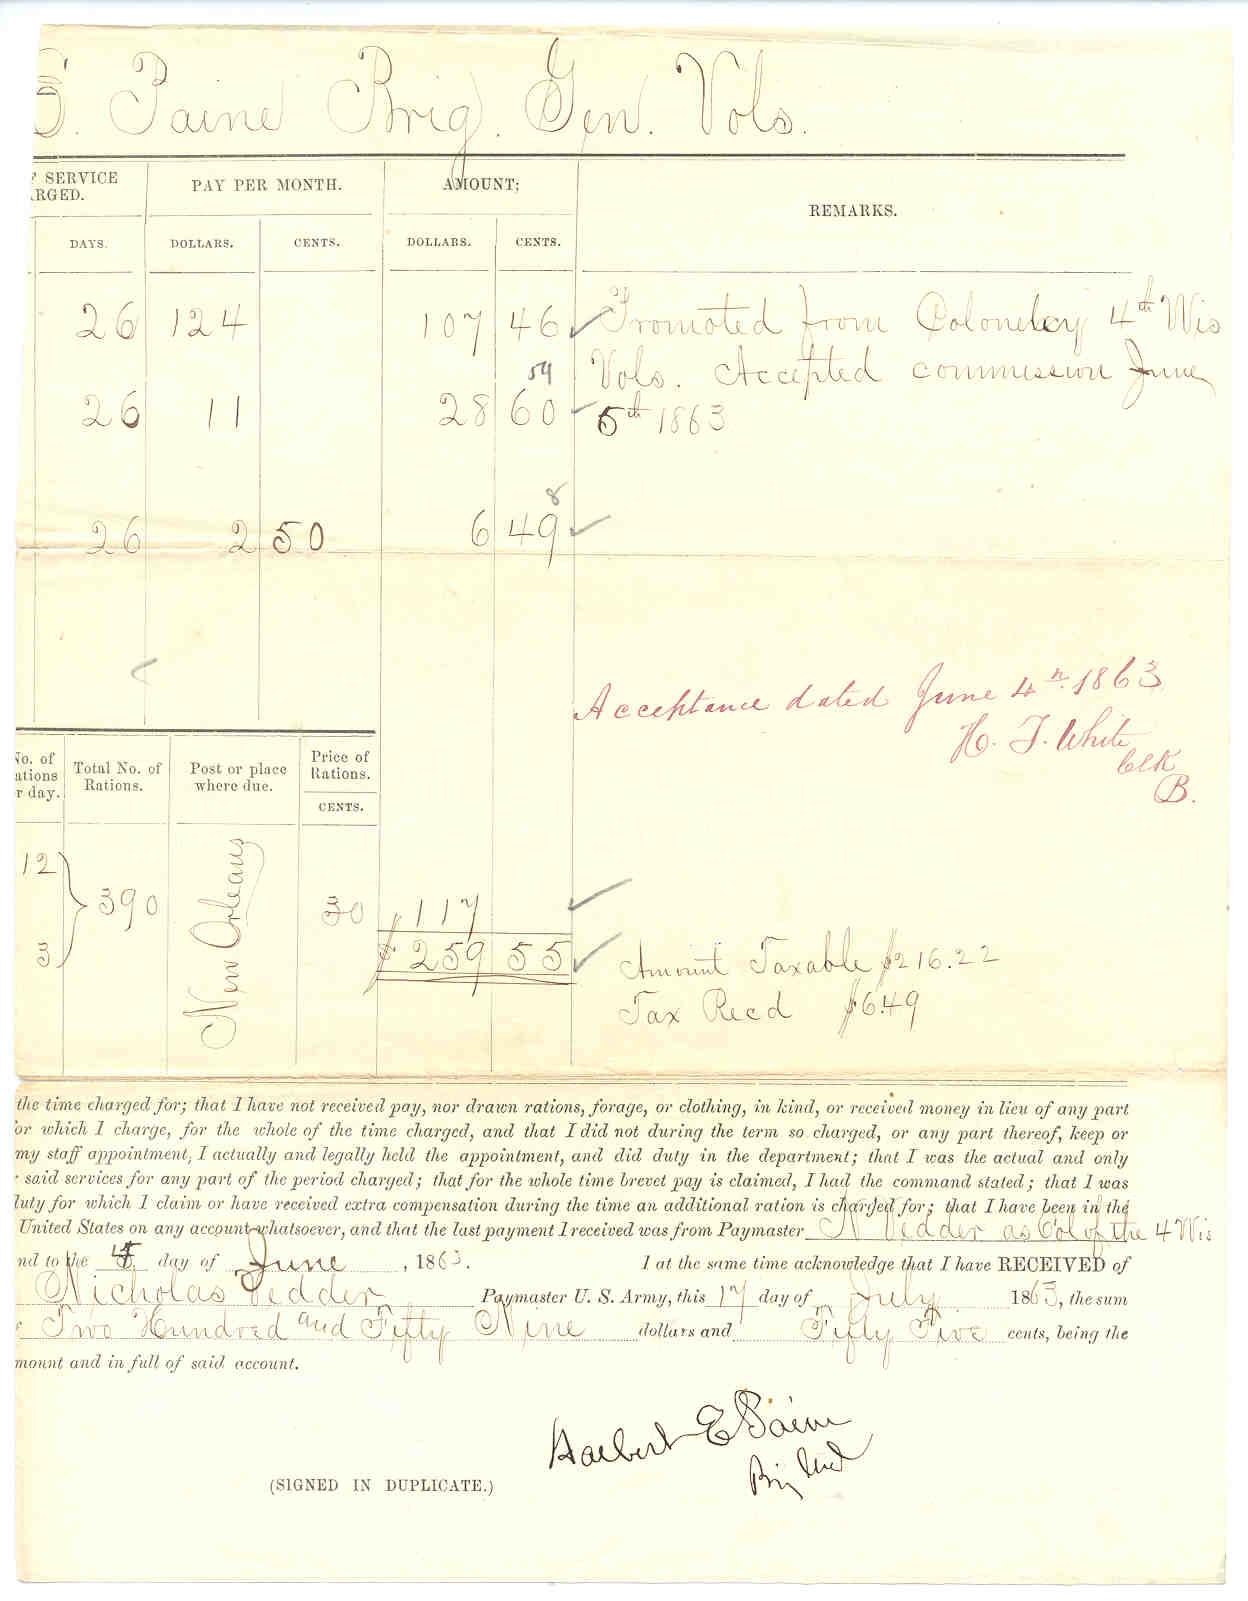 E. Paine Brig. Gen. Vols.
F SERVICE
ARGED.
PAY PER MONTH.
AMOUNT;
REMARKS.
DAYS.
DOLLARS.
CENTS.
DOLLARS.
CENTS.
26 124 107 46 Promoted from Colonelcy 4th Wis
54 Vols. Accepted commission June
26 11 28 60 5th 1863
8
26 2 50 6 49
Acceptance dated June 4th 1863
H. F. White
Clk
B.
No. of
ations
r day.
Total No. of
Rations.
Post or place
where due.
Price of
Rations.
CENTS.
12
390 New Orleans 30 117
3
$259 55 Amount Taxable $216.22
Tax Recd $6.49
the time charged for; that I have not received pay, nor drawn rations, forage, or clothing, in kind, or received money in lieu of any part
for which I charge, for the whole of the time charged, and that I did not during the term so charged, or any part thereof, keep or
my staff appointment, I actually and legally held the appointment, and did duty in the department; that I was the actual and only
said services for any part of the period charged; that for the whole time brevet pay is claimed, I had the command stated; that I was
duty for which I claim or have received extra compensation during the time an additional ration is charged for; that I have been in the
United States on any account whatsoever, and that the last payment I received was from Paymaster N Vedder as Col of the 4 Wis
nd to the day of June, 1863. I at the same time acknowledge that I have RECEIVED of
Nicholas Vedder Paymaster U. S. Army, this 17 day of July 1863, the sum
Two Hundred and Fifty Nine dollars and Fifty Five cents, being the
mount and in full of said account.
Halbert E Paine
Brig Genl
(SIGNED IN DUPLICATE.)